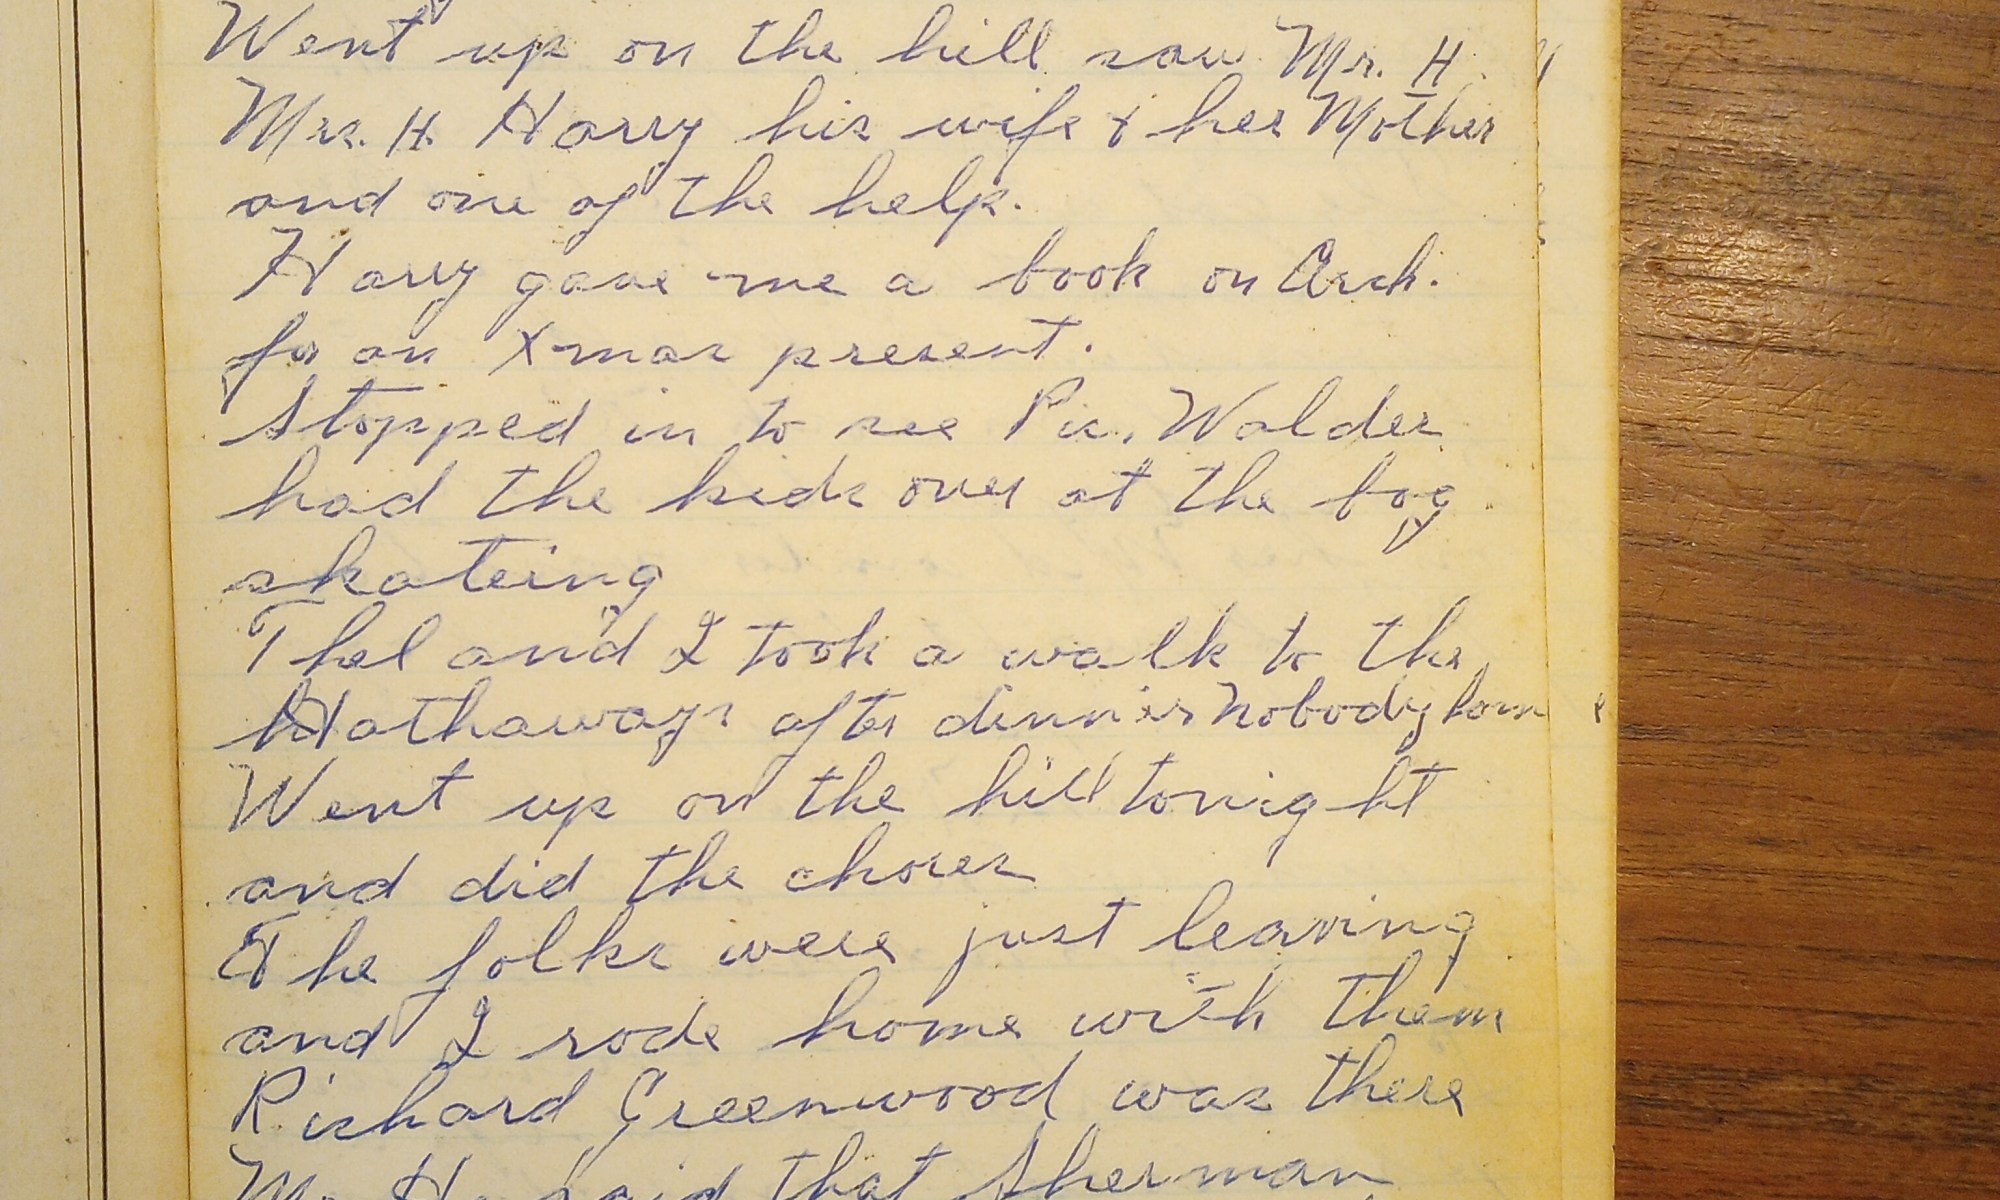 Went up on the hill saw Mr. H.
Mrs. H. Harry his wife & her Mother
and one of the help.
Harry gave me a book on Arch.
for an Xmas present.
Stopped in to see Walder
had the kids over at the bog
skateing
Thel and I took a walk to the
Hathaways after dinner nobody home
Went up on the hill tonight
and did the chores
The folks were just leaving
and I rode home with them
Richard Greenwood was there
Mr. H. said that Sherman